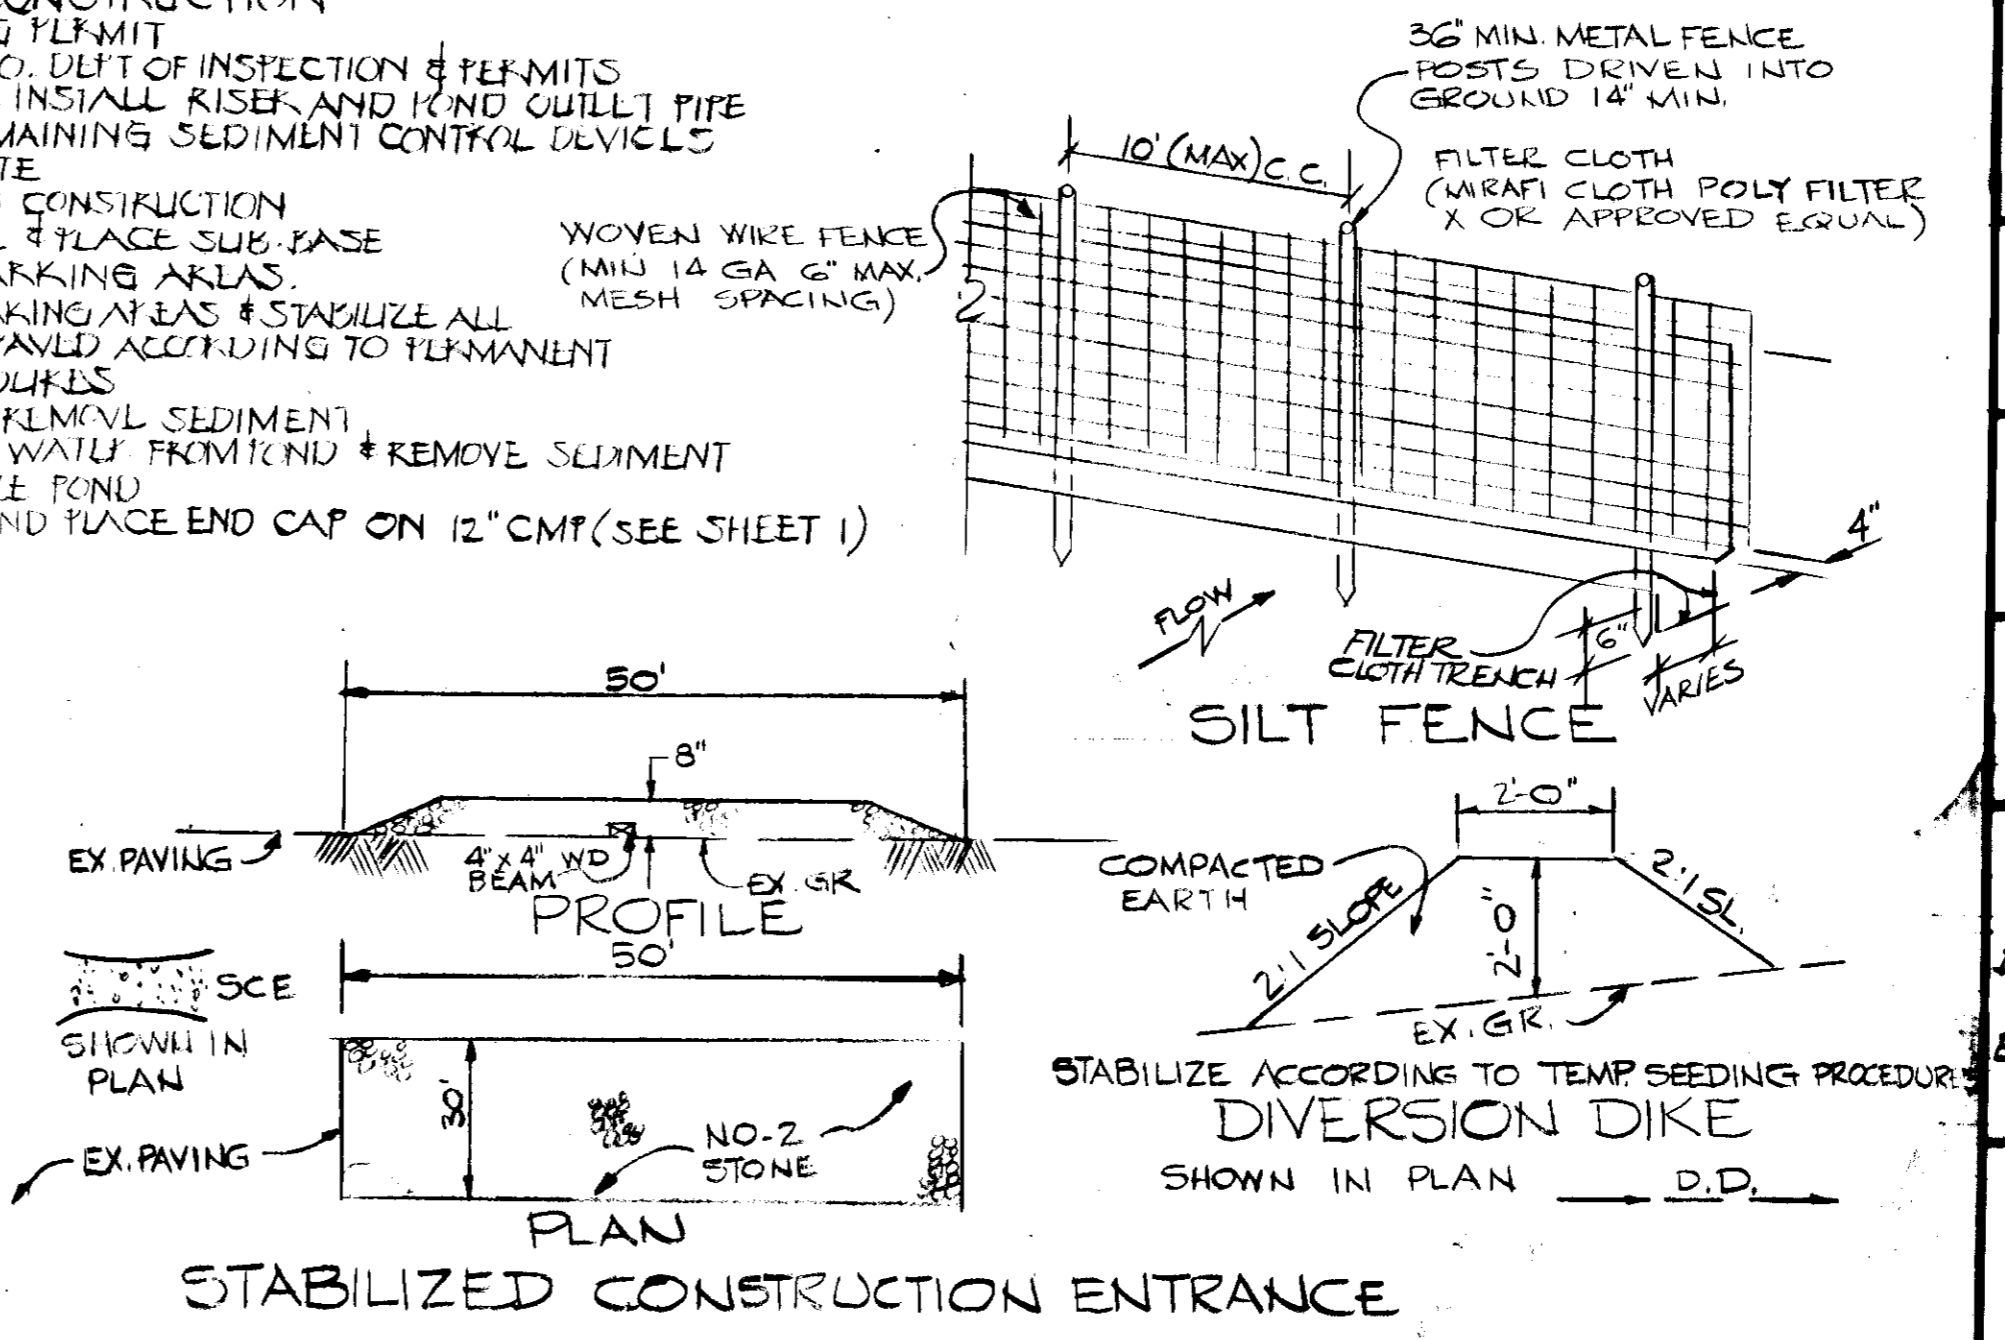 CONSTRUCTION
G PERMIT
O. DEPT OF INSPECTION & PERMITS
INSTALL RISER AND POND OUTLET PIPE
MAINING SEDIMENT CONTROL DEVICES
TE
CONSTRUCTION
& PLACE SUB-BASE
ARKING AREAS.
KING AREAS & STABILIZE ALL
PAVED ACCORDING TO PERMANENT
DURES
REMOVE SEDIMENT
WATER FROM POND & REMOVE SEDIMENT
LE POND
ND PLACE END CAP ON 12" CMP (SEE SHEET 1)
36" MIN. METAL FENCE
POSTS DRIVEN INTO
GROUND 14" MIN.
10' (MAX) C. C.
FILTER CLOTH
(MIRAFI CLOTH POLY FILTER
X OR APPROVED EQUAL)
WOVEN WIRE FENCE
(MIN 14 GA 6" MAX.
MESH SPACING)
4"
FLOW
FILTER
CLOTH TRENCH
6"
VARIES
SILT FENCE
50'
8"
EX. PAVING
4" x 4" WD
BEAM
EX. GR
PROFILE
50'
SCE
SHOWN IN
PLAN
30'
EX. PAVING
NO-2
STONE
PLAN
STABILIZED CONSTRUCTION ENTRANCE
2'-0"
COMPACTED
EARTH
2:1 SLOPE
2'-0"
2:1 SL.
EX. GR.
STABILIZE ACCORDING TO TEMP. SEEDING PROCEDURES
DIVERSION DIKE
SHOWN IN PLAN
D.D.